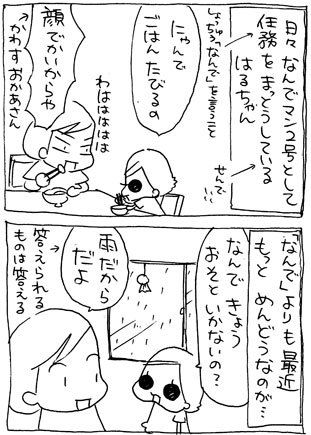 日々 なんでマン2号として
任務をまっとうしている
はるちゃん
「なんで」を言うこと
せんで…
にゃんで
ごはん たびるの
わはははは
顔でかいからや
かわすおかあさん
「なんで」よりも 最近
もっと めんどうなのが…
なんで きょう
おそと いかないの?
雨だから
だよ
答えられる
ものは答える